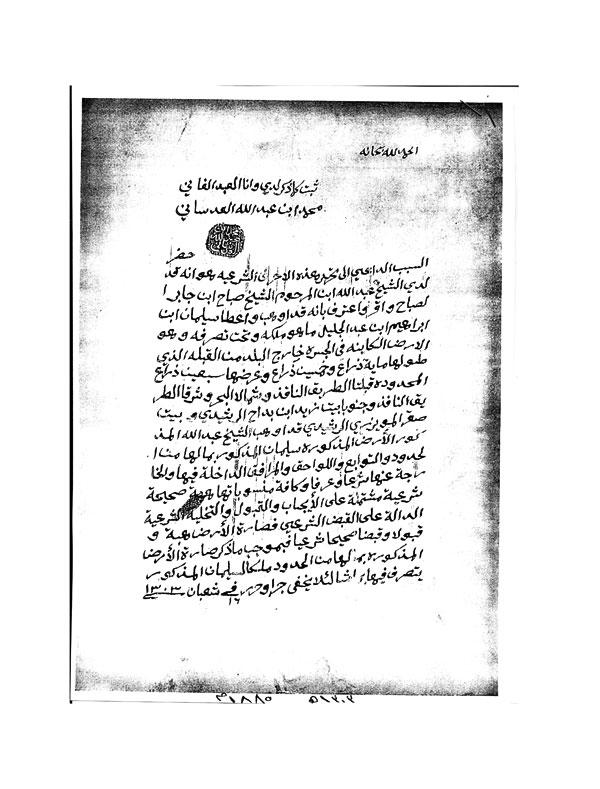 الحمد لله سبحانه
ثبت كما ذكر لدي وانا العبد الفاني
محمد ابن عبدالله العدساني
السبب الداعي الى تحرير هذه الاحرف الشرعيه هو انه قد حضر
لدي الشيخ عبدالله ابن المرحوم الشيخ صباح ابن جابر ا
لصباح واقر واعترف بانه قد اوهب واعطا سليمان ابن
ابراهيم ابن عبد الجليل ما هو ملكه وتحت تصرفه وهو
الارض الكاينه في خارج البلد من القبله الذي
طولها ماية ذراع وخمسين ذراع وعرضها سبعين ذراع
المحدوده قبلتا الطريق النافذ وشمالا البحر وشرقا الطر
يق النافذ وجنوبا بيت ابن بداح الرشيدي وبيت
صقر الرشيدي قد اوهب الشيخ عبدالله المذ
كور الارض المذكوره سليمان المذكور بمالها من ا
لحدود والتوابع واللواحق والمرافق الداخلة فيها والخا
رجة عنها شرعا وعرفا وكافة منسوباتها هبة صحيحة
شرعية مشتملة على الأيجاب والقبول والتخلية الشرعية
الدالة على القبض الشرعي فصارة الأرض هبة و
قبولا وقبضا صحيحا شرعيا فبموجب ما ذكر صارة الأرض
المذكوره بمالها من الحدود ملكا لسليمان المذكور
يتصرف فيها لئلا يخفى جرا وحرر في ١٦ شعبان ١٣٠٣
١٨٨٥م ١٣٠٣ه